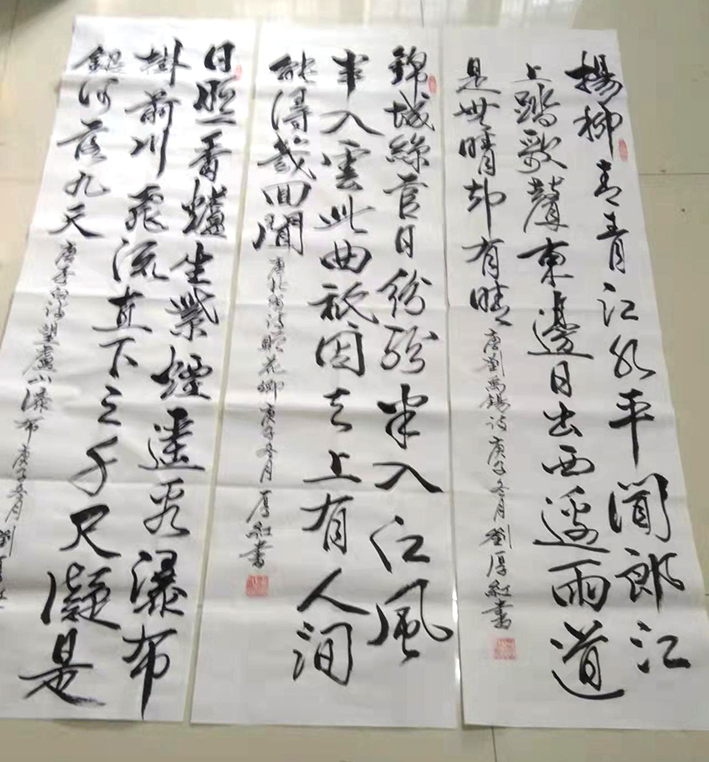 揚柳青青江水平聞郎江
上踏歌聲東邊日出西邊雨道
是無晴却有晴 唐劉禹錫詩 庚子冬月 劉厚紅書
錦城絲管日紛紛半入江風
半入雲此曲祇因天上有人間
能得幾回聞 唐杜甫詩贈花卿 庚子冬月 厚紅書
日照香爐生紫煙遥看瀑布
掛前川飛流直下三千尺凝是
銀河落九天 唐李白詩望廬山瀑布 庚子冬月 劉厚紅